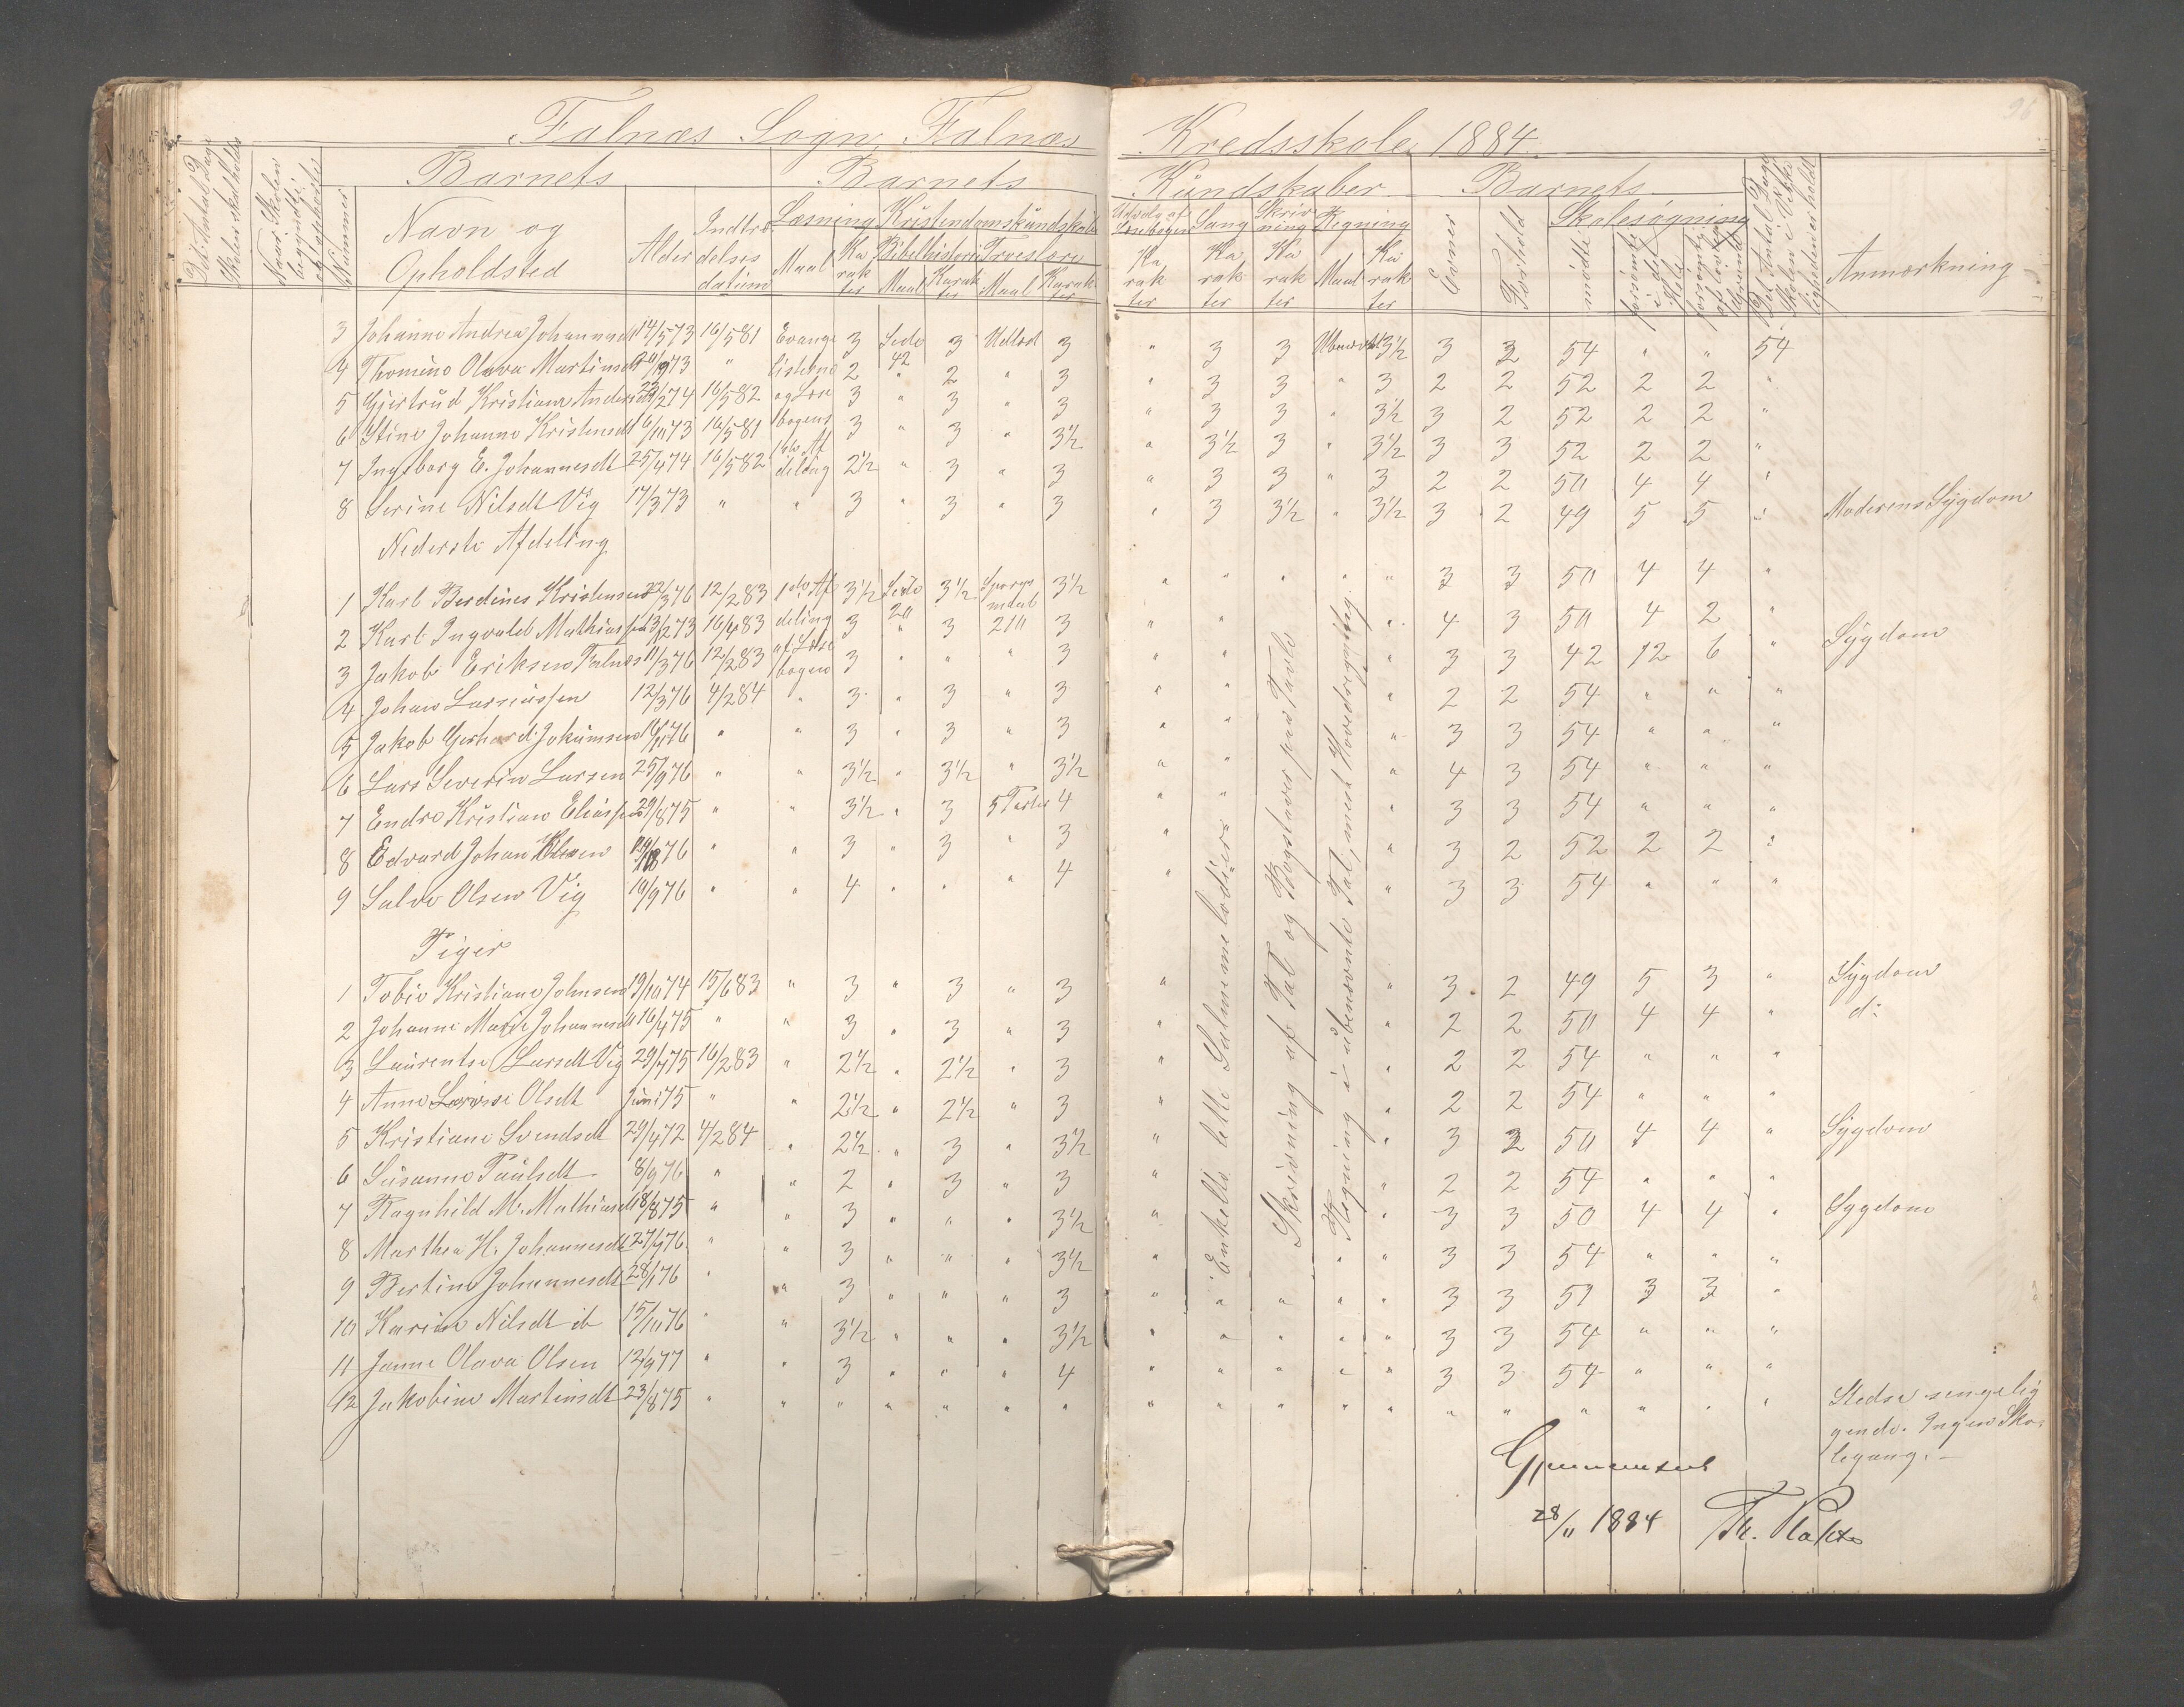 Falnæs Sogn, Falnæs Kredsskole 1884.
96
Det Antal Dage Skolen skal holdes
Naar Skolen begyndte og ophørte
Nummer
Barnets
Navn og Opholdsted
Alder
Indtrædelses datum
Barnets
Læsning
Maal
Karakter
Kristendomskundskab
Bibelhistorie
Maal
Karakter
Troeslære
Maal
Karakter
Kundskaber
Udvalg af Læsebogen
Karakter
Sang
Karakter
Skrivning
Karakter
Regning
Maal
Karakter
Barnets
Evner
Forhold
Skolesøgning
mødte
forsømte i det Hele
forsømte af lovlig Grund
Det Antal Dage Skolen i Virkeligheden er holdt
Anmærkning
3 Johanne Andrea Johannesdt 14/5 73 16/5 81 Evange 3 Side 3 Udlød 3 " 3 3 Ubenævnt 3½ 3 2 54 " " 54
4 Thomine Olava Martinsdt 20/9 73 " listerne 2 42 2 " 3 " 3 3 " 3 2 2 52 2 2 "
5 Gjertrud Kristiane Andersdt 23/2 74 16/5 82 og Læse 3 " 3 " 3 " 3 3 " 3½ 3 2 52 2 2 "
6 Stine Johanne Kristensdt 6/10 73 16/5 81 bogens 3 " 3 " 3½ " 3½ 3 " 3½ 3 3 52 2 2 "
7 Ingeborg E. Johannesdt 25/4 74 16/5 82 deling 2½ " 3 " 3 " 3 3 " 3 2 2 50 4 4 "
8 Serine Nilsdt Vig 17/3 73 " " 3 " 3 " 3 " 3 3½ " 3½ 3 2 49 5 5 " Moderens Sygdom
Nederste Afdeling
1 Karl Berdines Kristensen 22/3 76 12/2 83 1ste Af 3½ Side 3½ Spørgs 3½ " " " " " 3 3 50 4 4 "
2 Karl Ingvald Mathiassen 13/2 73 16/4 83 deling 3 20 3 maal 210 3 " " " 4 3 50 4 2 "
3 Jakob Eriksen Falnæs 11/3 76 12/2 83 af Læse bogen 3 " " " 3 " " " 3 3 42 12 6 " Sygdom
4 Johan Larsiussen 12/3 76 4/2 84 " 3 " 3 " 3 " " " 2 2 54 " " "
5 Jakob Gerhard Jokumsen 16/11 76 " " 3 " 3 " 3 " " " 3 3 54 " " "
6 Lars Severin Larsen 25/9 76 " " 3½ " 3½ " 3½ " " " 4 3 54 " " "
7 Endre Kristian Eliassen 29/8 75 " " 3½ " 3 5 Parter 4 " " " 3 3 54 " " "
8 Edvard Johan Olsen 19/8 76 " " 3 " 3 " 3 " " 3 2 52 2 2 "
9 Salve Olsen Vig 19/9 76 " " 4 " " " 4 " " 3 3 54 " " "
Piger
1 Tobie Kristiane Johnsen 19/10 74 15/6 83 " 3 " 3 " 3 " " 3 2 49 5 3 " Sygdom
2 Johanne Marie Johannesdt 16/4 75 " " 3 " 3 " 3 " " 2 2 50 4 4 " do
3 Laurentse Larsdt Vig 29/4 75 16/2 83 " 2½ " 2½ " 3 " " 2 2 54 " " "
4 Anne Lovise Olsdt Juni 75 " " 2½ " 2½ " 3 " " 2 2 54 " " "
5 Kristiane Svendsdt 29/4 72 4/2 84 " 2½ " 3 " 3½ " " 3 2 50 4 4 " Sygdom
6 Susanne Paulsdt 8/9 76 " " 2 " 3 " 3 " " 2 2 54 " " "
7 Ragnhild M. Mathiasdt 18/8 75 " " 3 " " " 3½ " " 3 3 50 4 4 " Sygdom
8 Marthea H. Johannesdt 27/9 76 " " 3 " " " 3½ " " " 3 3 54 " " "
9 Bertine Johannesdt 28/1 76 " " 3 " " " 3 " " " " " 3 3 51 3 3 "
10 Karine Nilsdt ib 15/10 76 " " 3½ " " " 3½ " " " " " 3 3 54 " " "
11 Janne Olava Olsen 12/9 77 " " 3 " " " 4 " " " " " 3 3 54 " " "
12 Jakobine Martinsdt 23/8 75 " " " " " " " " " " " " " " " " " " Stedse sengelig
gende. Ingen Sko-
legang. –
Enkelte lette Salmemelodier
Skrivning af Tal og Bogstaver paa Tavle
Regning i ubenævnte Tal, mest Hovedregning
Gjennemseet
28/11 1884